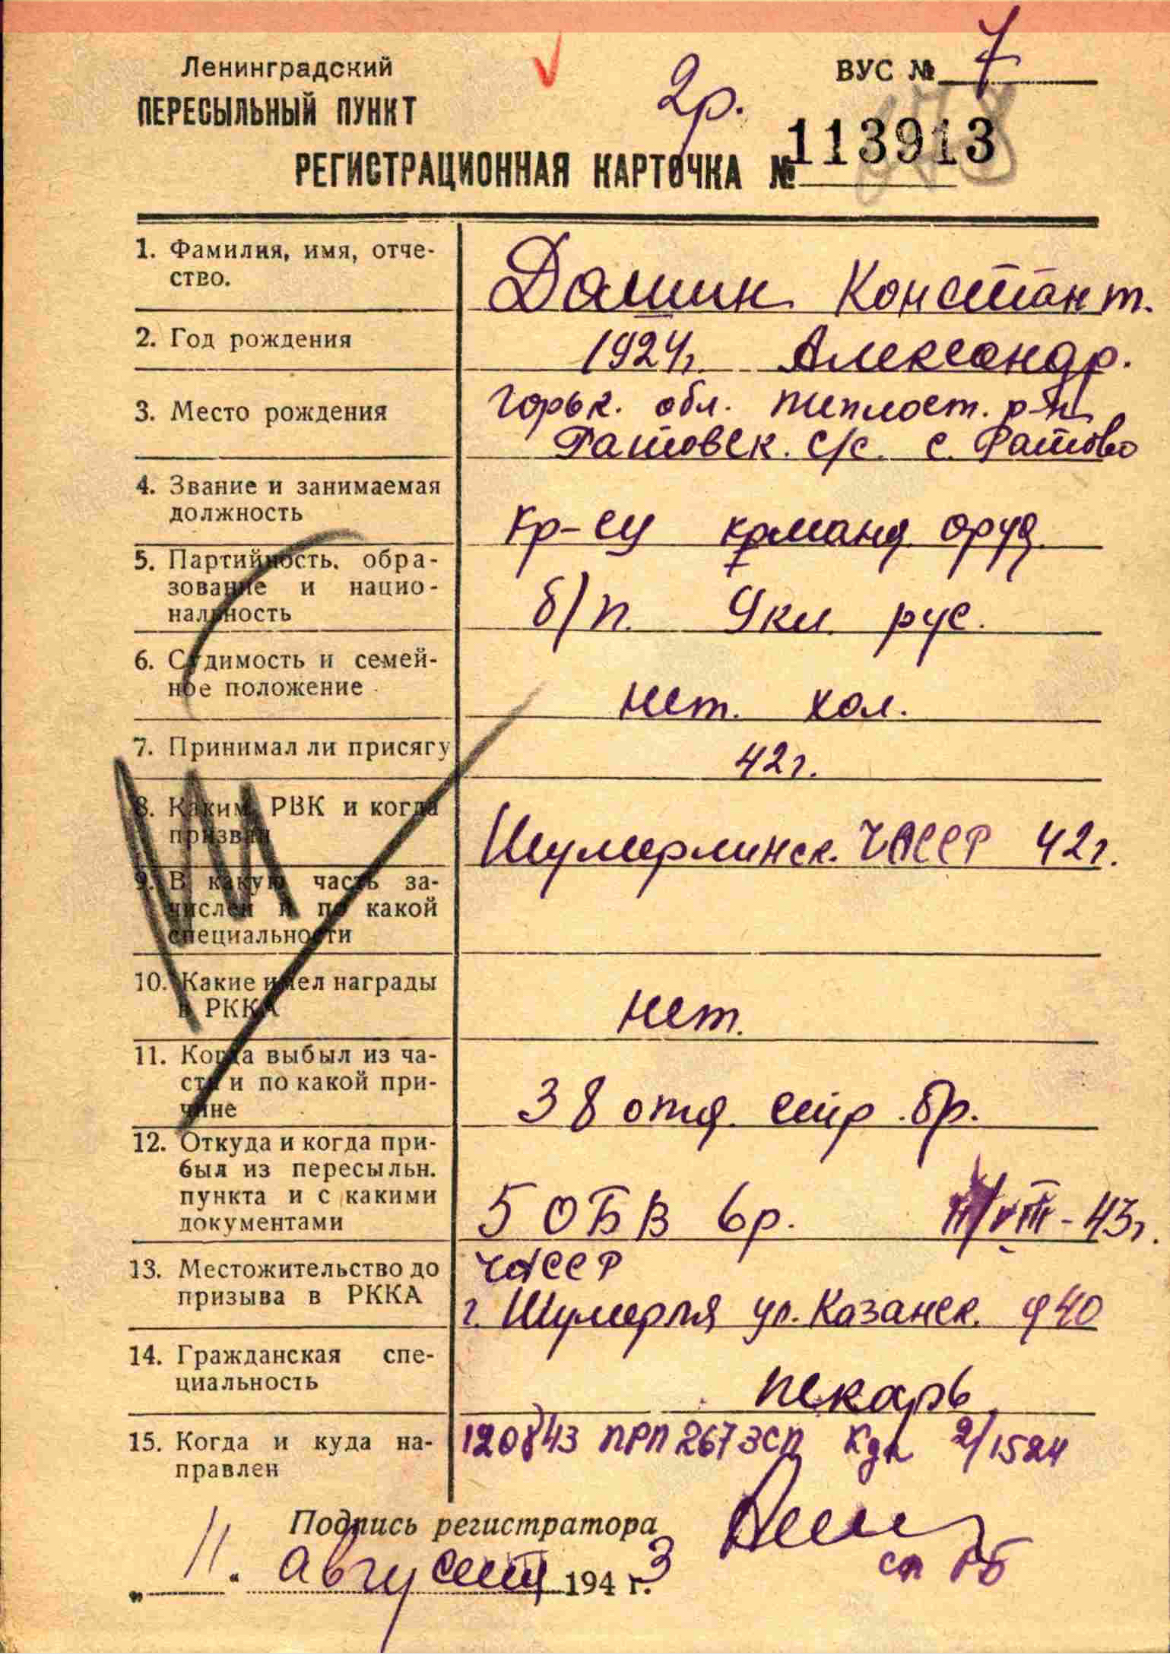 Ленинградский
ПЕРЕСЫЛЬНЫЙ ПУНКТ
2р.
ВУС № 7
РЕГИСТРАЦИОННАЯ КАРТОЧКА № 113913
1. Фамилия, имя, отче-
ство.
Дошин Констант.
2. Год рождения
1924г. Александр.
3. Место рождения
Горьк. обл. Теплост. р-н
Ратовск. с/с. с. Ратово
4. Звание и занимаемая
должность
кр-ец команд. оруд.
5. Партийность, обра-
зование и нацио-
нальность
б/п. 9 кл. рус.
6. Судимость и семей-
ное положение
нет. хол.
7. Принимал ли присягу
42г.
8. Каким РВК и когда
призван
Шумерлинск. ЧАССР 42г.
9. В какую часть за-
числен и по какой
специальности
10. Какие имел награды
в РККА
нет.
11. Когда выбыл из ча-
сти и по какой при-
чине
38 отд. стр. бр.
12. Откуда и когда при-
был из пересыльн.
пункта и с какими
документами
5 ОБВ 6р. 11/VIII-43г.
13. Местожительство до
призыва в РККА
ЧАССР
г. Шумерля ул. Казанск. д 40
14. Гражданская спе-
циальность
пекарь
15. Когда и куда на-
правлен
120843 ПРП 267 ЗСП 2/1524
Подпись регистратора
„11“ август 1943 г.